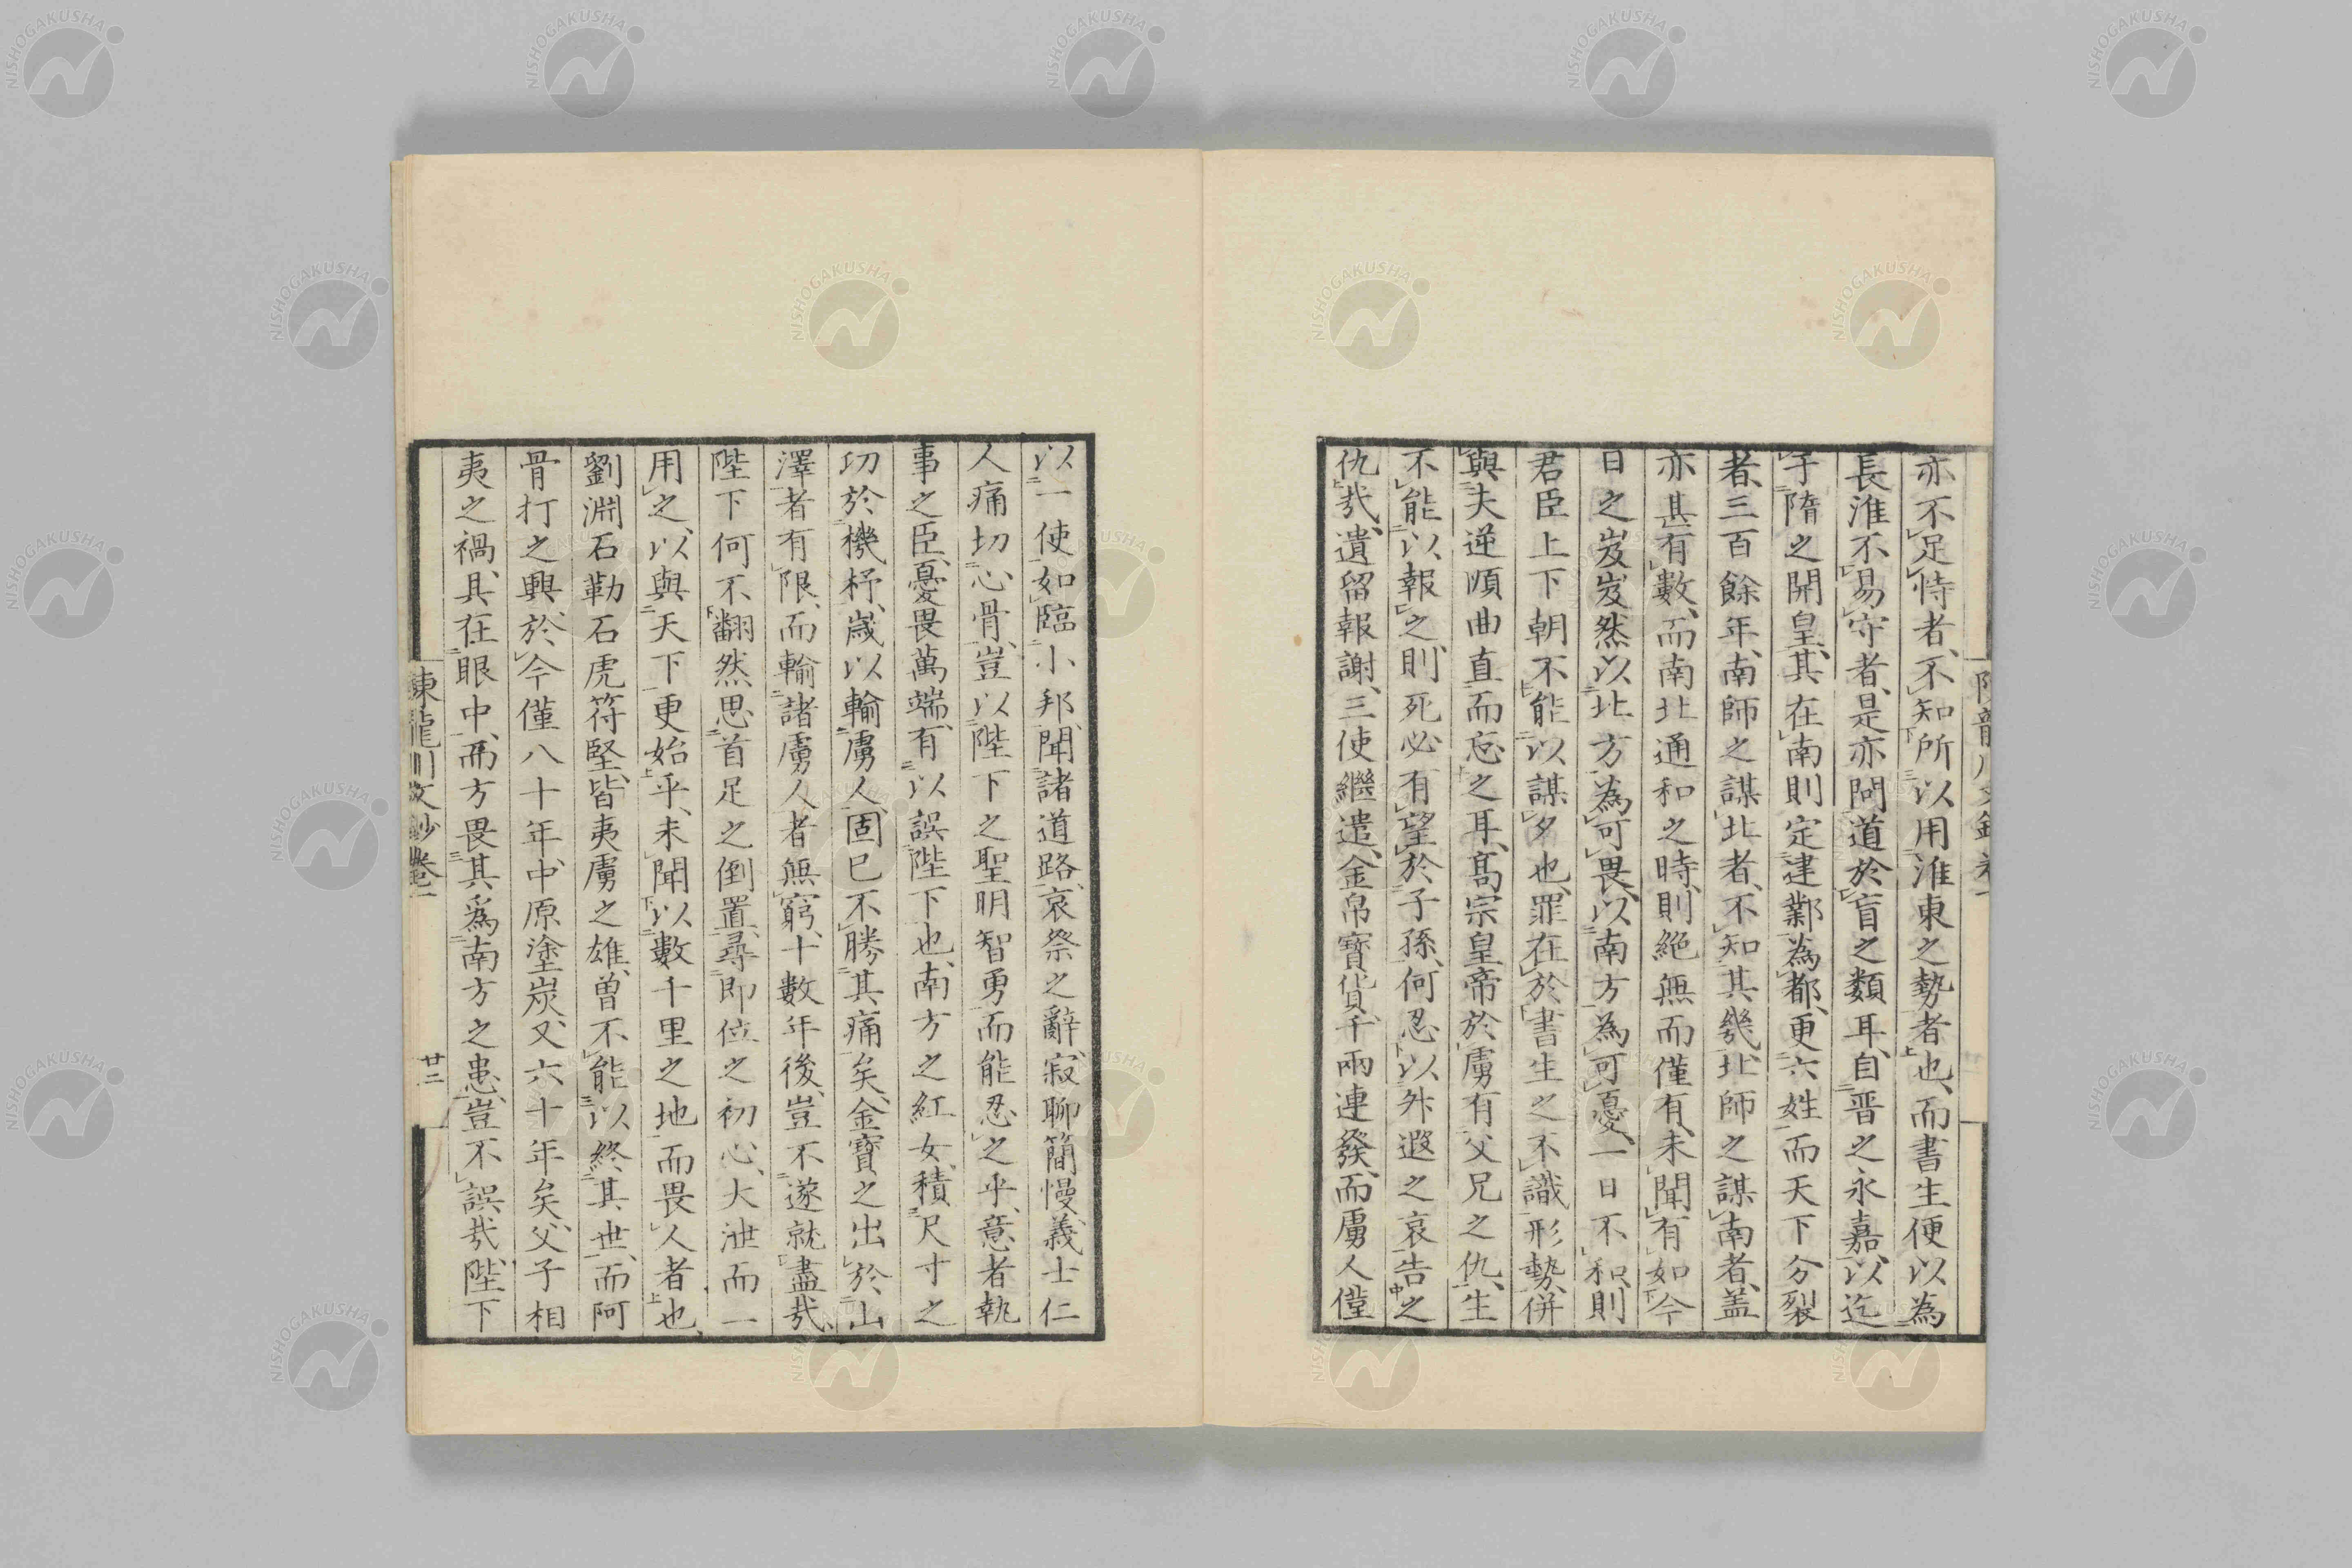 亦不足恃者、不知所以用淮東之勢者也、而書生便以為
長淮不易守者、是亦問道於盲之類耳、自晋之永嘉、以迄
于隋之開皇、其在南則定建鄴為都、更六姓而天下分裂
者、三百餘年、南師之謀北者、不知其幾、北師之謀南者、盖
亦甚有數、而南北通和之時、則絶無而僅有、未聞有如今
日之岌岌然以北方為可畏、以南方為可憂、一日不和、則
君臣上下朝不能以謀夕也、罪在於書生之不識形勢、併
與夫逆順曲直而忘之耳、髙宗皇帝於虜有父兄之仇、生
不能以報之、則死必有望於子孫、何忍以外遐之哀告之
仇㢤、遺留報謝、三使繼遣、金帛寳貨、千兩連發、而虜人僅
以一使如臨小邦、聞諸道路、哀祭之辭、寂聊簡慢、義士仁
人痛切心骨、豈以陛下之聖明智勇而能忍之乎、意者執
事之臣、憂畏萬端、有以誤陛下也、南方之紅女、積尺寸之
功於機杼、歳以輸虜人、固已不勝其痛矣、金寳之出於山
澤者有限、而輸諸虜人者無窮、十數年後、豈不遂就盡㢤、
陛下何不翻然思首足之倒置、尋即位之初心、大泄而一
用之、以與天下更始乎、未聞以數千里之地而畏人者也、
劉淵石勒石虎符堅、皆夷虜之雄、曽不能以終其世、而阿
骨打之興、於今僅八十年、中原塗炭又六十年矣、父子相
夷之禍、具在眼中、而方畏其爲南方之患、豈不誤㢤、陛下
陳龍川文鈔卷一
廿二
NISHOGAKUSHA